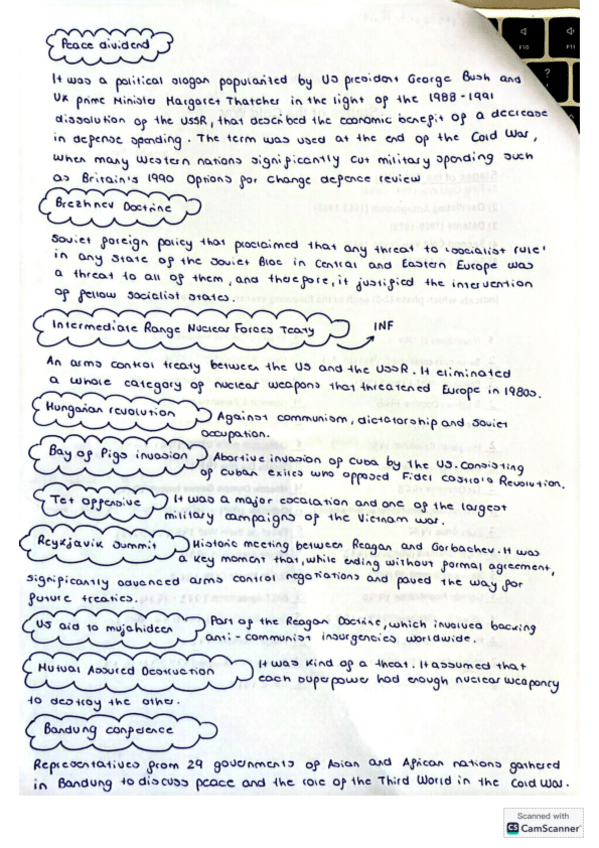 Peace dividend
It was a political slogan popularized by US president George Bush and
UK prime Minister Margaret Thatcher in the light of the 1988-1991
dissolution of the USSR, that described the economic benefit of a decrease
in defense spending. The term was used at the end of the Cold War,
when many Western nations significantly cut military spending such
as Britain's 1990 Options for change defence review
Brezhnev Doctrine
Soviet foreign policy that proclaimed that any threat to 'socialist rule'
in any state of the Soviet Bloc in Central and Eastern Europe was
a threat to all of them, and therefore, it justified the intervention
of fellow socialist states.
Intermediate Range Nuclear Forces Teaty INF
An arms control treaty between the US and the USSR. It eliminated
a whole category of nuclear weapons that threatened Europe in 1980s.
Hungarian revolution Against communism, dictatorship and Soviet
occupation.
Bay of Pigs invasion Abortive invasion of Cuba by the US. Consisting
of Cuban exiles who opposed Fidel Castro's Revolution.
Tet offensive It was a major escalation and one of the largest
military campaigns of the Vietnam war.
Reykjavik Summit Historic meeting between Reagan and Gorbachev. It was
a key moment that, while ending without formal agreement,
significantly advanced arms control negotiations and paved the way for
future treaties.
US aid to mujahideen Part of the Reagan Doctrine, which involved backing
anti-communist insurgencies worldwide.
Mutual Assured Destruction It was kind of a threat. It assumed that
each superpower had enough nuclear weaponry
to destroy the other.
Bandung conference
Representatives from 29 governments of Asian and African nations gathered
in Bandung to discuss peace and the role of the Third World in the Cold War.
Scanned with
CS CamScanner
F10
F11
?